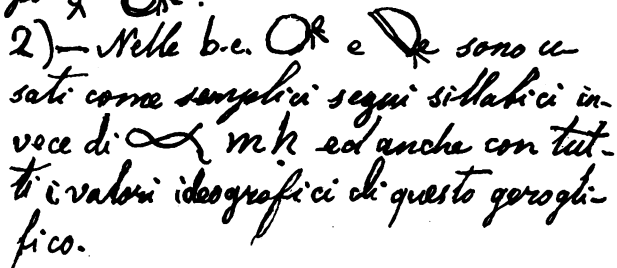 2)— Nelle b.e. e sono u-
sati come semplici segni sillabici in-
vece di mḥ ed anche con tut-
ti i valori ideografici di questo gerogli-
fico.